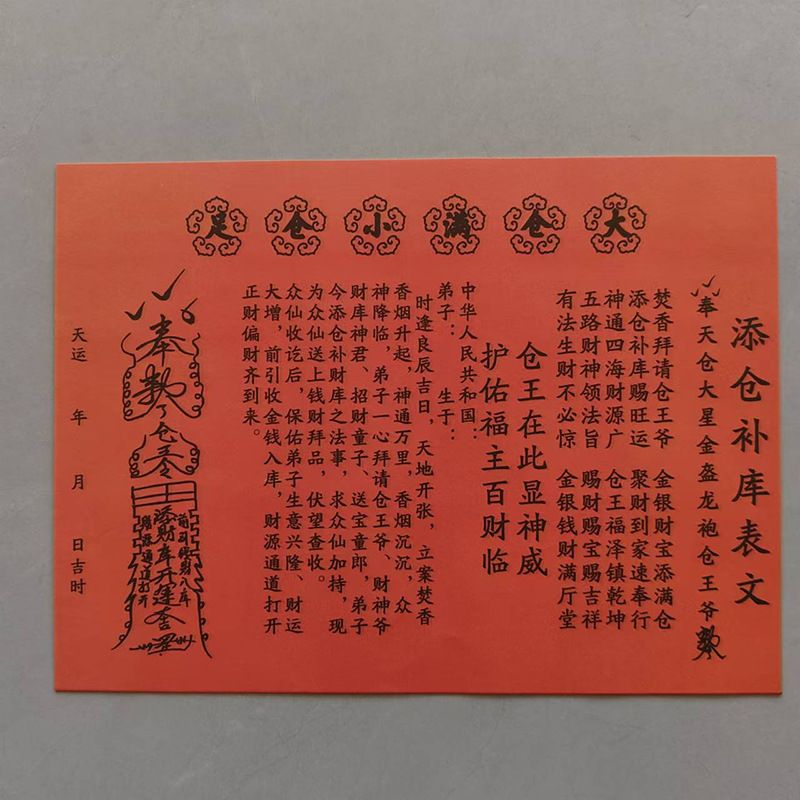 大仓满小仓足
添仓补库表文
奉天仓大星金盔龙袍仓王爷敕令
焚香拜请仓王爷 金银财宝添满仓
添仓补库赐旺运 聚财到家速奉行
神通四海财源广 仓王福泽镇乾坤
五路财神领法旨 赐财赐宝赐吉祥
有法生财不必惊 金银钱财满厅堂
仓王在此显神威
护佑福主百财临
中华人民共和国：
弟子： 生于：
时逢良辰吉日，天地开张，立案焚香
香烟升起，神通万里，香烟沉沉，众
神降临，弟子一心拜请仓王爷、财神爷
财库神君、招财童子、送宝童郎，弟子
今添仓补财库之法事，求众仙加持，现
为众仙送上钱财拜品，伏望查收。
众仙收讫后，保佑弟子生意兴隆、财运
大增，前引收金钱入库，财源通道打开
正财偏财齐到来。
奉敕了仓令
添财库开运
财源通道打开
天运 年 月 日吉时